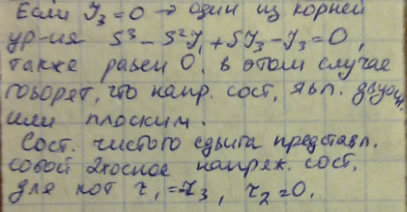 Если J₃ = 0 → один из корней
ур-ия S³ - S²J₁ + SJ₃ - J₃ = 0,
также равен 0. в этом случае
говорят, что напр. сост. явл. двуосн.
или плоским.
Сост. чистого сдвига представл.
собой 2хосное напряж. сост.
для кот τ₁ = -τ₃, τ₂ = 0.